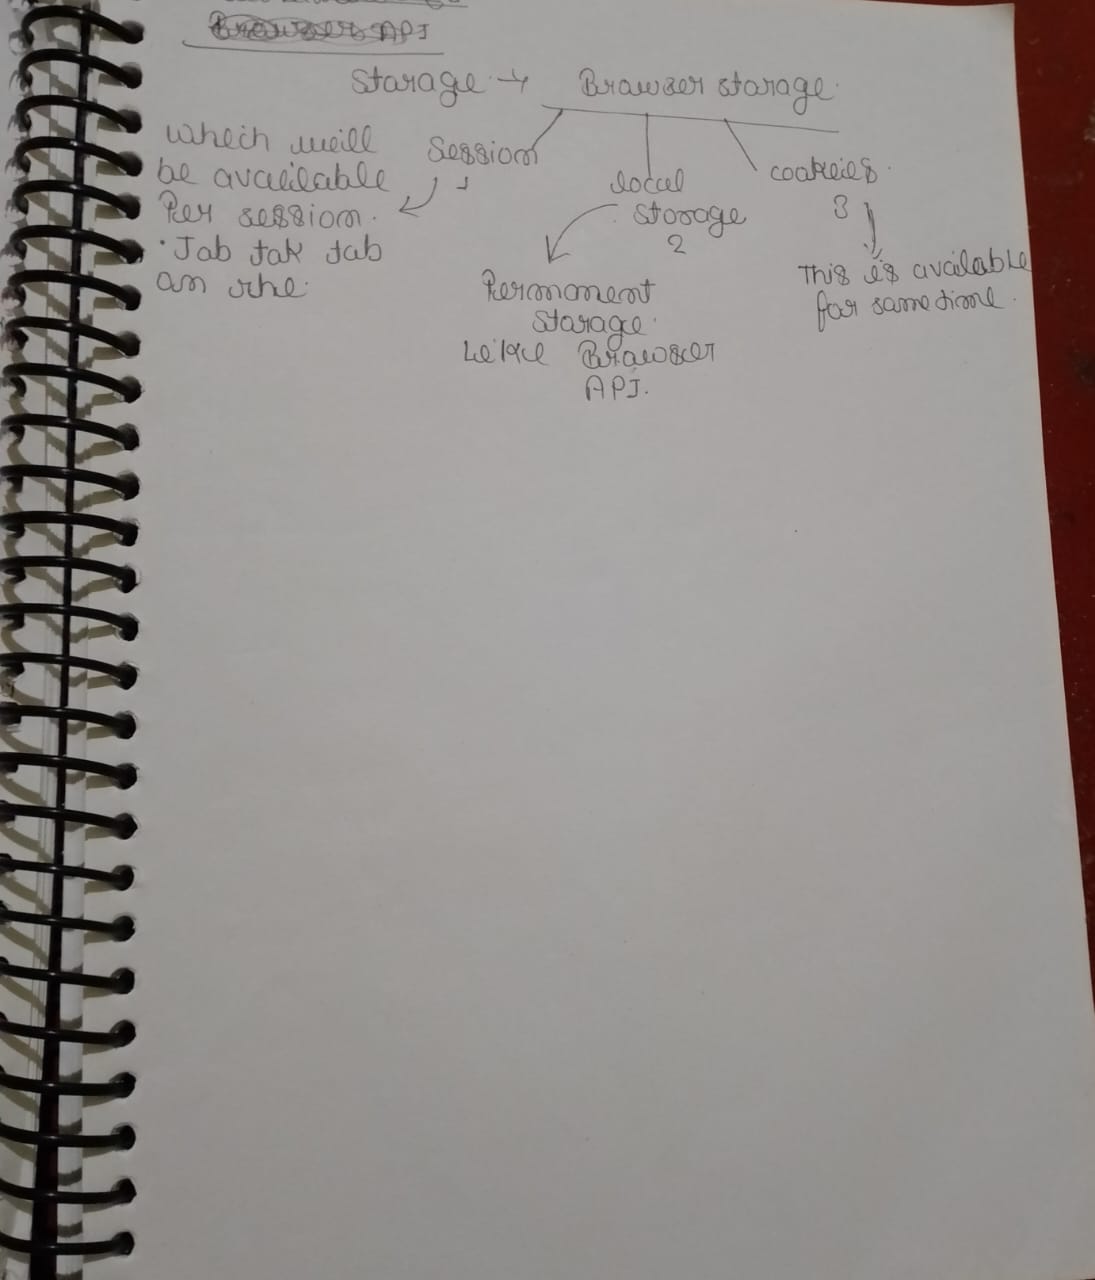 Browser API
Storage → Browser storage.
Session
1
which will
be available
Per session.
• Jab tak tab
on rhe.
local
storage
2
Permonment
storage.
Like Browser
API.
cookies.
3
This is available
for sometime.